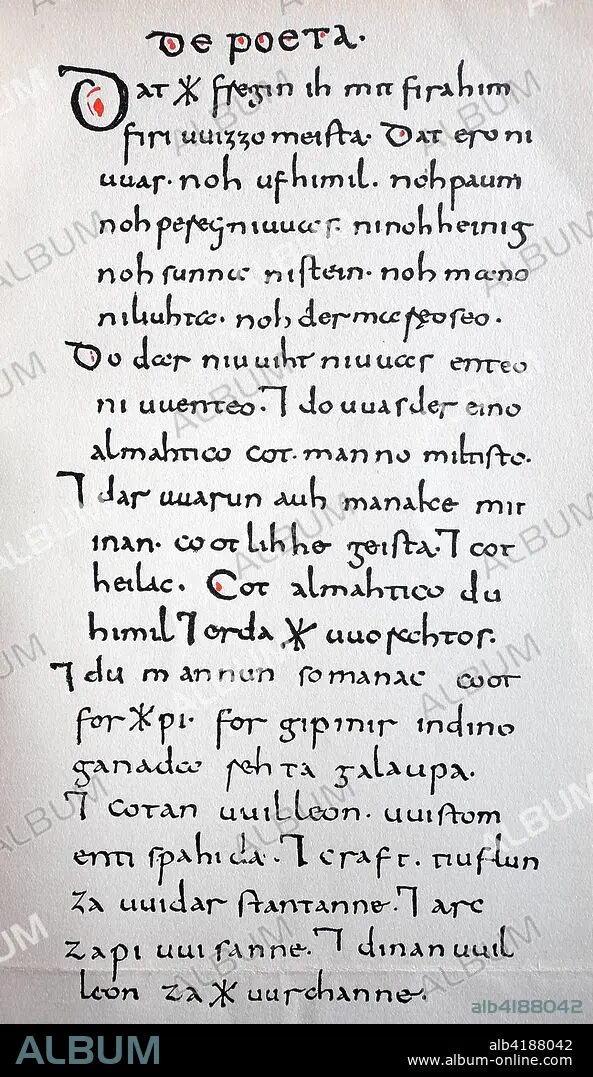 De poeta.
Dat ᛡ fregin ih mit firahim
firi uuizzo meista. Dat ero ni
uuas. noh ufhimil. noh paum
noh pereg ni uuas. ni noh heinig
noh sunna ni stein. noh mano
ni liuhta. noh der mareo seo.
Do dar niuuiht niuuas enteo
ni uuenteo. ⁊ do uuas der eino
almahtico cot. manno miltisto.
⁊ dar uuarun auh manake mit
inan. cootlihhe geista. ⁊ cot
heilac. Cot almahtico du
himil ⁊ erda ᛡ uuorahtos.
⁊ du mannun so manac coot
for ᛡ pi. for gipmir indino
ganada rehta galaupa.
⁊ cotan uuilleon. uuistom
enti spahida. ⁊ craft. tiuflun
za uuidar stantanne. ⁊ arc
zapi uuisanne. ⁊ dinan uuil
leon za ᛡ uurchanne.
alb4188042
ALBUM
alb4188042
www.album-online.com